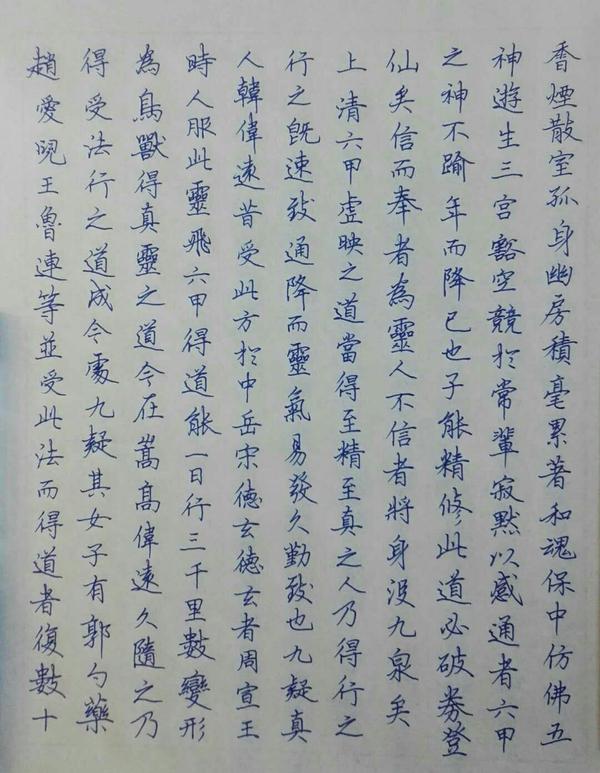 香煙散室孤身幽房積毫累著和魂保中仿佛五
神遊生三宮豁空競於常輩寂默以感通者六甲
之神不踰年而降己也子能精修此道必破券登
仙矣信而奉者為靈人不信者將身沒九泉矣
上清六甲虛映之道當得至精至真之人乃得行之
行之既速致通降而靈氣易發久勤致也九疑真
人韓偉遠昔受此方於中岳宋德玄德玄者周宣王
時人服此靈飛六甲得道能一日行三千里數變形
為鳥獸得真靈之道今在嵩高偉遠久隨之乃
得受法行之道成今處九疑其女子有郭勺藥
趙愛皃王魯連等並受此法而得道者復數十